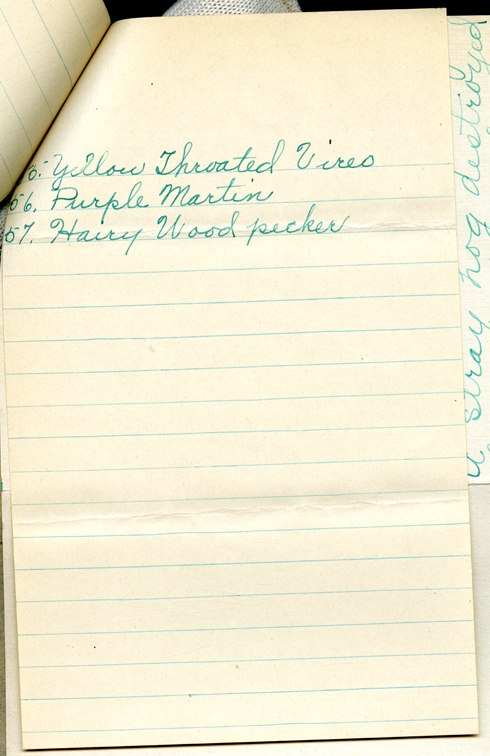 5. Yellow Throated Vireo
56. Purple Martin
57. Hairy Wood pecker
a stray hog destroyed